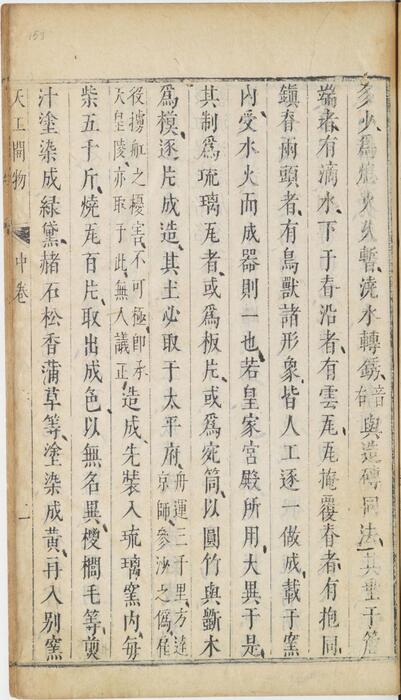 多少爲熄火久暫澆水轉銹音與造磚同法其垂于簷
端者有滴水下于脊沿者有雲瓦瓦掩覆脊者有抱同
鎮脊兩頭者有鳥獸諸形象皆人工逐一做成載于窯
內受水火而成器則一也若皇家宮殿所用大異于是
其制爲琉璃瓦者或爲板片或爲宛筒以圓竹與斲木
爲模逐片成造其土必取于太平府舟運三千里方達京師參沙之僞雇
役擄舡之擾害不可極即承天皇陵亦取于此無人議正造成先裝入琉璃窯內每
柴五千斤燒瓦百片取出成色以無名異棕櫚毛等煎
汁塗染成緑黛赭石松香蒲草等塗染成黃再入別窯
天工開物
中卷
151